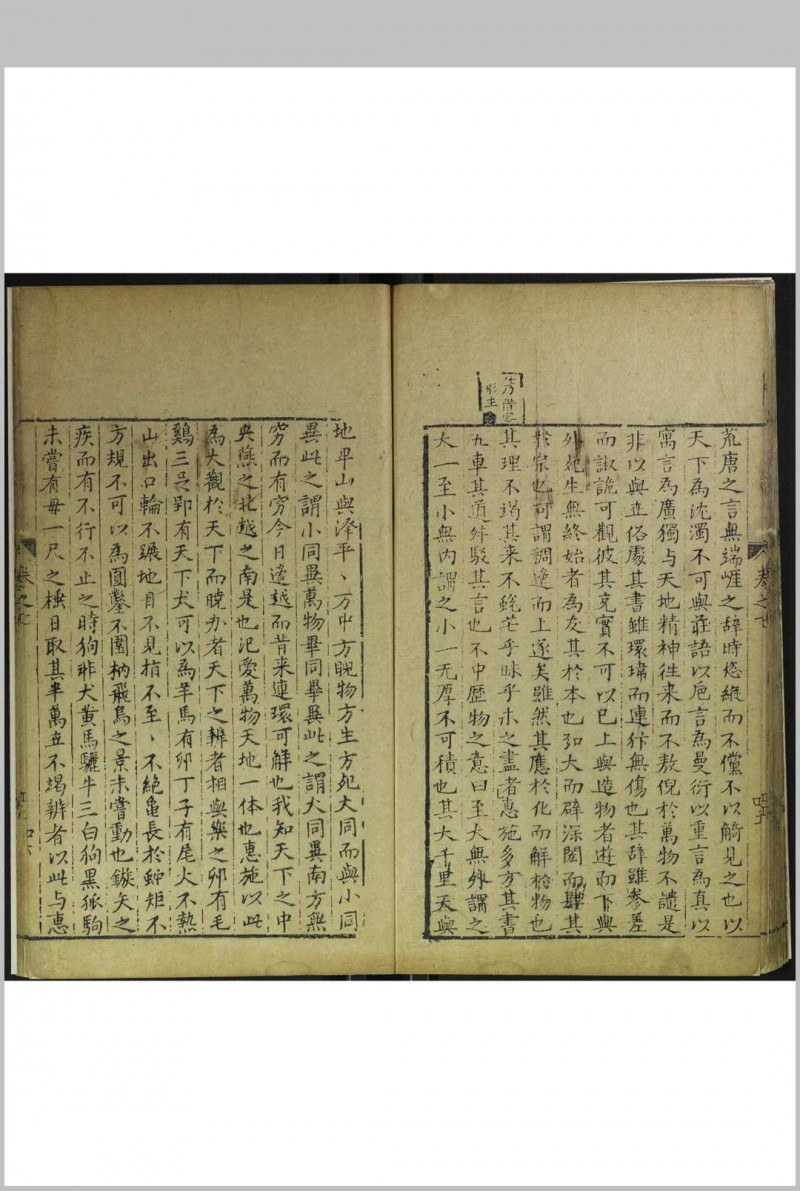 荒唐之言無端崕之辞時恣縱而不儻不以觭見之也以
天下為沈濁不可與莊語以卮言為曼衍以重言為真以
寓言為廣獨与天地精神徃来而不敖倪於萬物不譴是
非以與立俗處其書雖瓌瑋而連犿無傷也其辞雖参差
而諔詭可觀彼其充實不可以已上與造物者遊而下與
外死生無終始者為友其於本也弘大而辟深閎而肆其
於宗也可謂稠適而上遂矣雖然其應於化而解於物也
其理不竭其来不蛻芒乎昧乎未之盡者惠施多方其書
五車其道舛駁其言也不中歴物之意曰至大無外謂之
大一至小無内謂之小一无厚不可積也其大千里天與
乃借客
形主
卷之十
地平山與澤平丶方中方睨物方生方死大同而與小同
異此之謂小同異萬物畢同畢異此之謂大同異南方無
穷而有穷今日適越而昔来連環可解也我知天下之中
央燕之北越之南是也汜愛萬物天地一体也惠施以此
為大觀於天下而曉办者天下之辨者相與樂之卵有毛
鷄三足郢有天下犬可以為羊馬有卵丁子有尾火不熱
山出口輪不蹍地目不見指不至丶不絶龜長於蛇矩不
方規不可以為圓鑿不圍枘飛鳥之景未嘗動也鏃矢之
疾而有不行不止之時狗非犬黃馬驪牛三白狗黑孤駒
未嘗有毋一尺之棰日取其半萬丗不竭辨者以此与惠
卷之十
四六